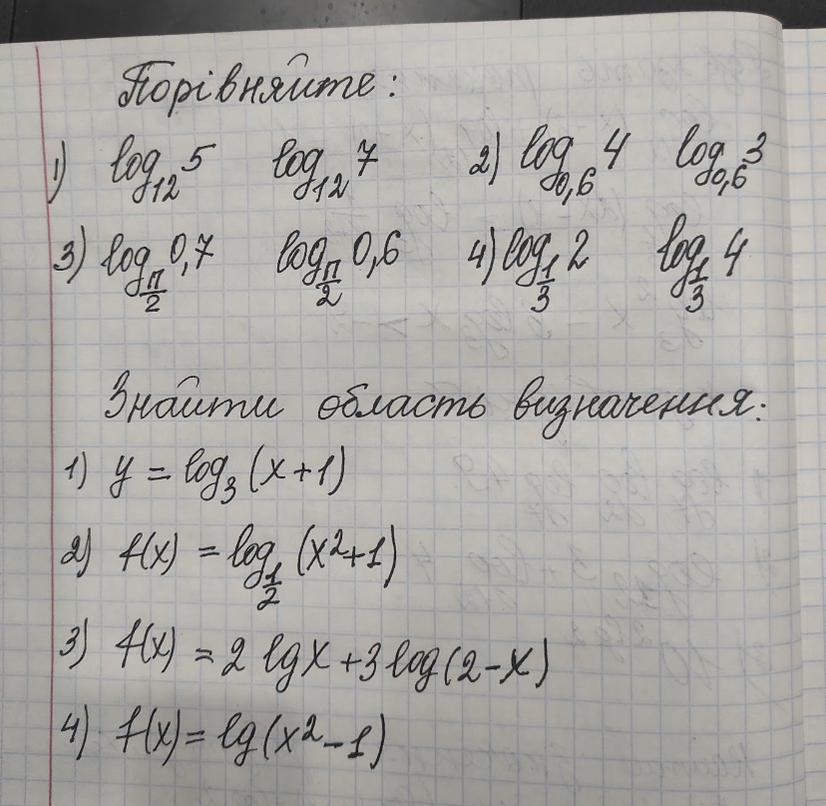 Порівняйте:
1) log₁₂5 log₁₂7 2) log₀,₆4 log₀,₆3
3) log_π/2 0,7 log_π/2 0,6 4) log_1/3 2 log_1/3 4
Знайти область визначення:
1) y = log₃(x+1)
2) f(x) = log_1/2 (x²+1)
3) f(x) = 2 lgx + 3 log(2-x)
4) f(x) = lg(x²-1)